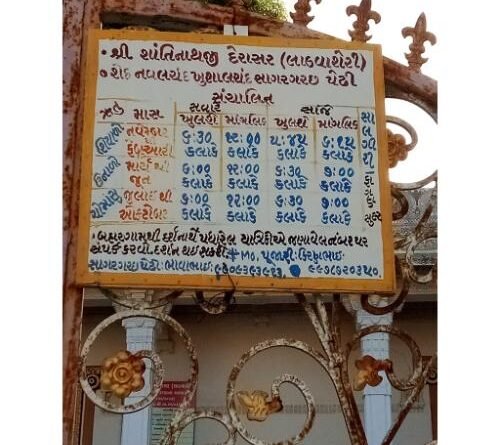 • શ્રી શાંતિનાથજી દેરાસર (લાડવાશેરી)
• શેઠ નવલચંદ ખુશાલચંદ સાગરગચ્છ પેઢી
સંચાલિત
ઋતુ માસ સવારે સાંજે
ખુલશે માંગલિક ખુલશે માંગલિક
શિયાળો નવેમ્બર ૬:૩૦ ૧૨:૦૦ ૫:૪૫
ફેબ્રુઆરી કલાકે કલાકે કલાકે કલાકે
ઉનાળો માર્ચ થી ૬:૦૦ ૧૨:૦૦ ૬:૩૦ ૭:૦૦
જૂન કલાકે કલાકે કલાકે કલાકે
ચોમાસું જુલાઈ થી ૬:૦૦ ૧૨:૦૦ ૬:૩૦ ૭:૦૦
ઓક્ટોબર કલાકે કલાકે કલાકે કલાકે
સાલગીરી
• બહારગામથી દર્શનાર્થે પધારેલ યાત્રિકોએ જણાવેલ નંબર પર
સંપર્ક કરવો. દર્શન થઇ શકશે. Mo. પૂજારી: કિરણભાઇ
સાગરગચ્છ પેઢી: